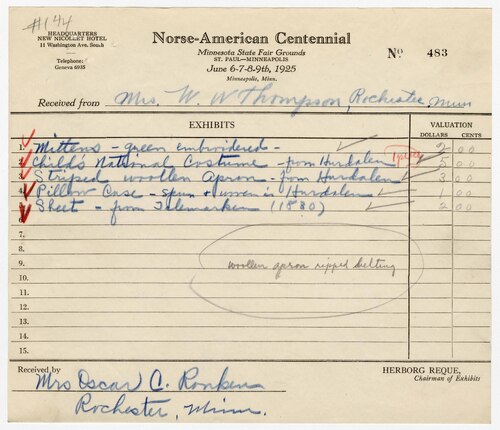 #144
HEADQUARTERS
NEW NICOLLET HOTEL
11 Washington Ave. South
Telephone:
Geneva 6935
Norse-American Centennial
Minnesota State Fair Grounds
ST. PAUL—MINNEAPOLIS
June 6-7-8-9th, 1925
Minneapolis, Minn.
No 483
Received from Mrs. W. W Thompson, Rochester, Minn
EXHIBITS
VALUATION
DOLLARS CENTS
1. Mittens - green embroidered - 2 00
2. Child's National Costume - from Hurdalen 5 00
3. Striped woolen Apron - from Hurdalen 3 00
4. Pillow Case - spun & woven in Hurdalen 1 00
5. Sheet - from Telemarken (1830) 2 00
6.
7.
8.
9. woolen apron ripped belting
10.
11.
12.
13.
14.
15.
Received by
Mrs Oscar C. Ronken
Rochester, Minn.
HERBORG REQUE,
Chairman of Exhibits